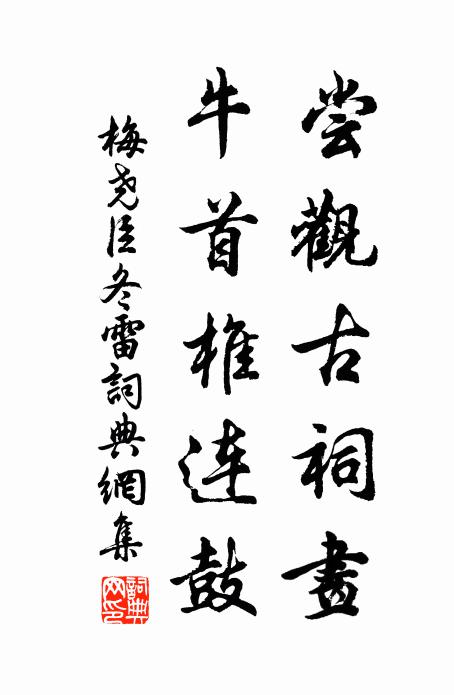 尝觀古祠畫
牛首椎连鼓
梅尧臣冬雷詞典網集
詞典网印